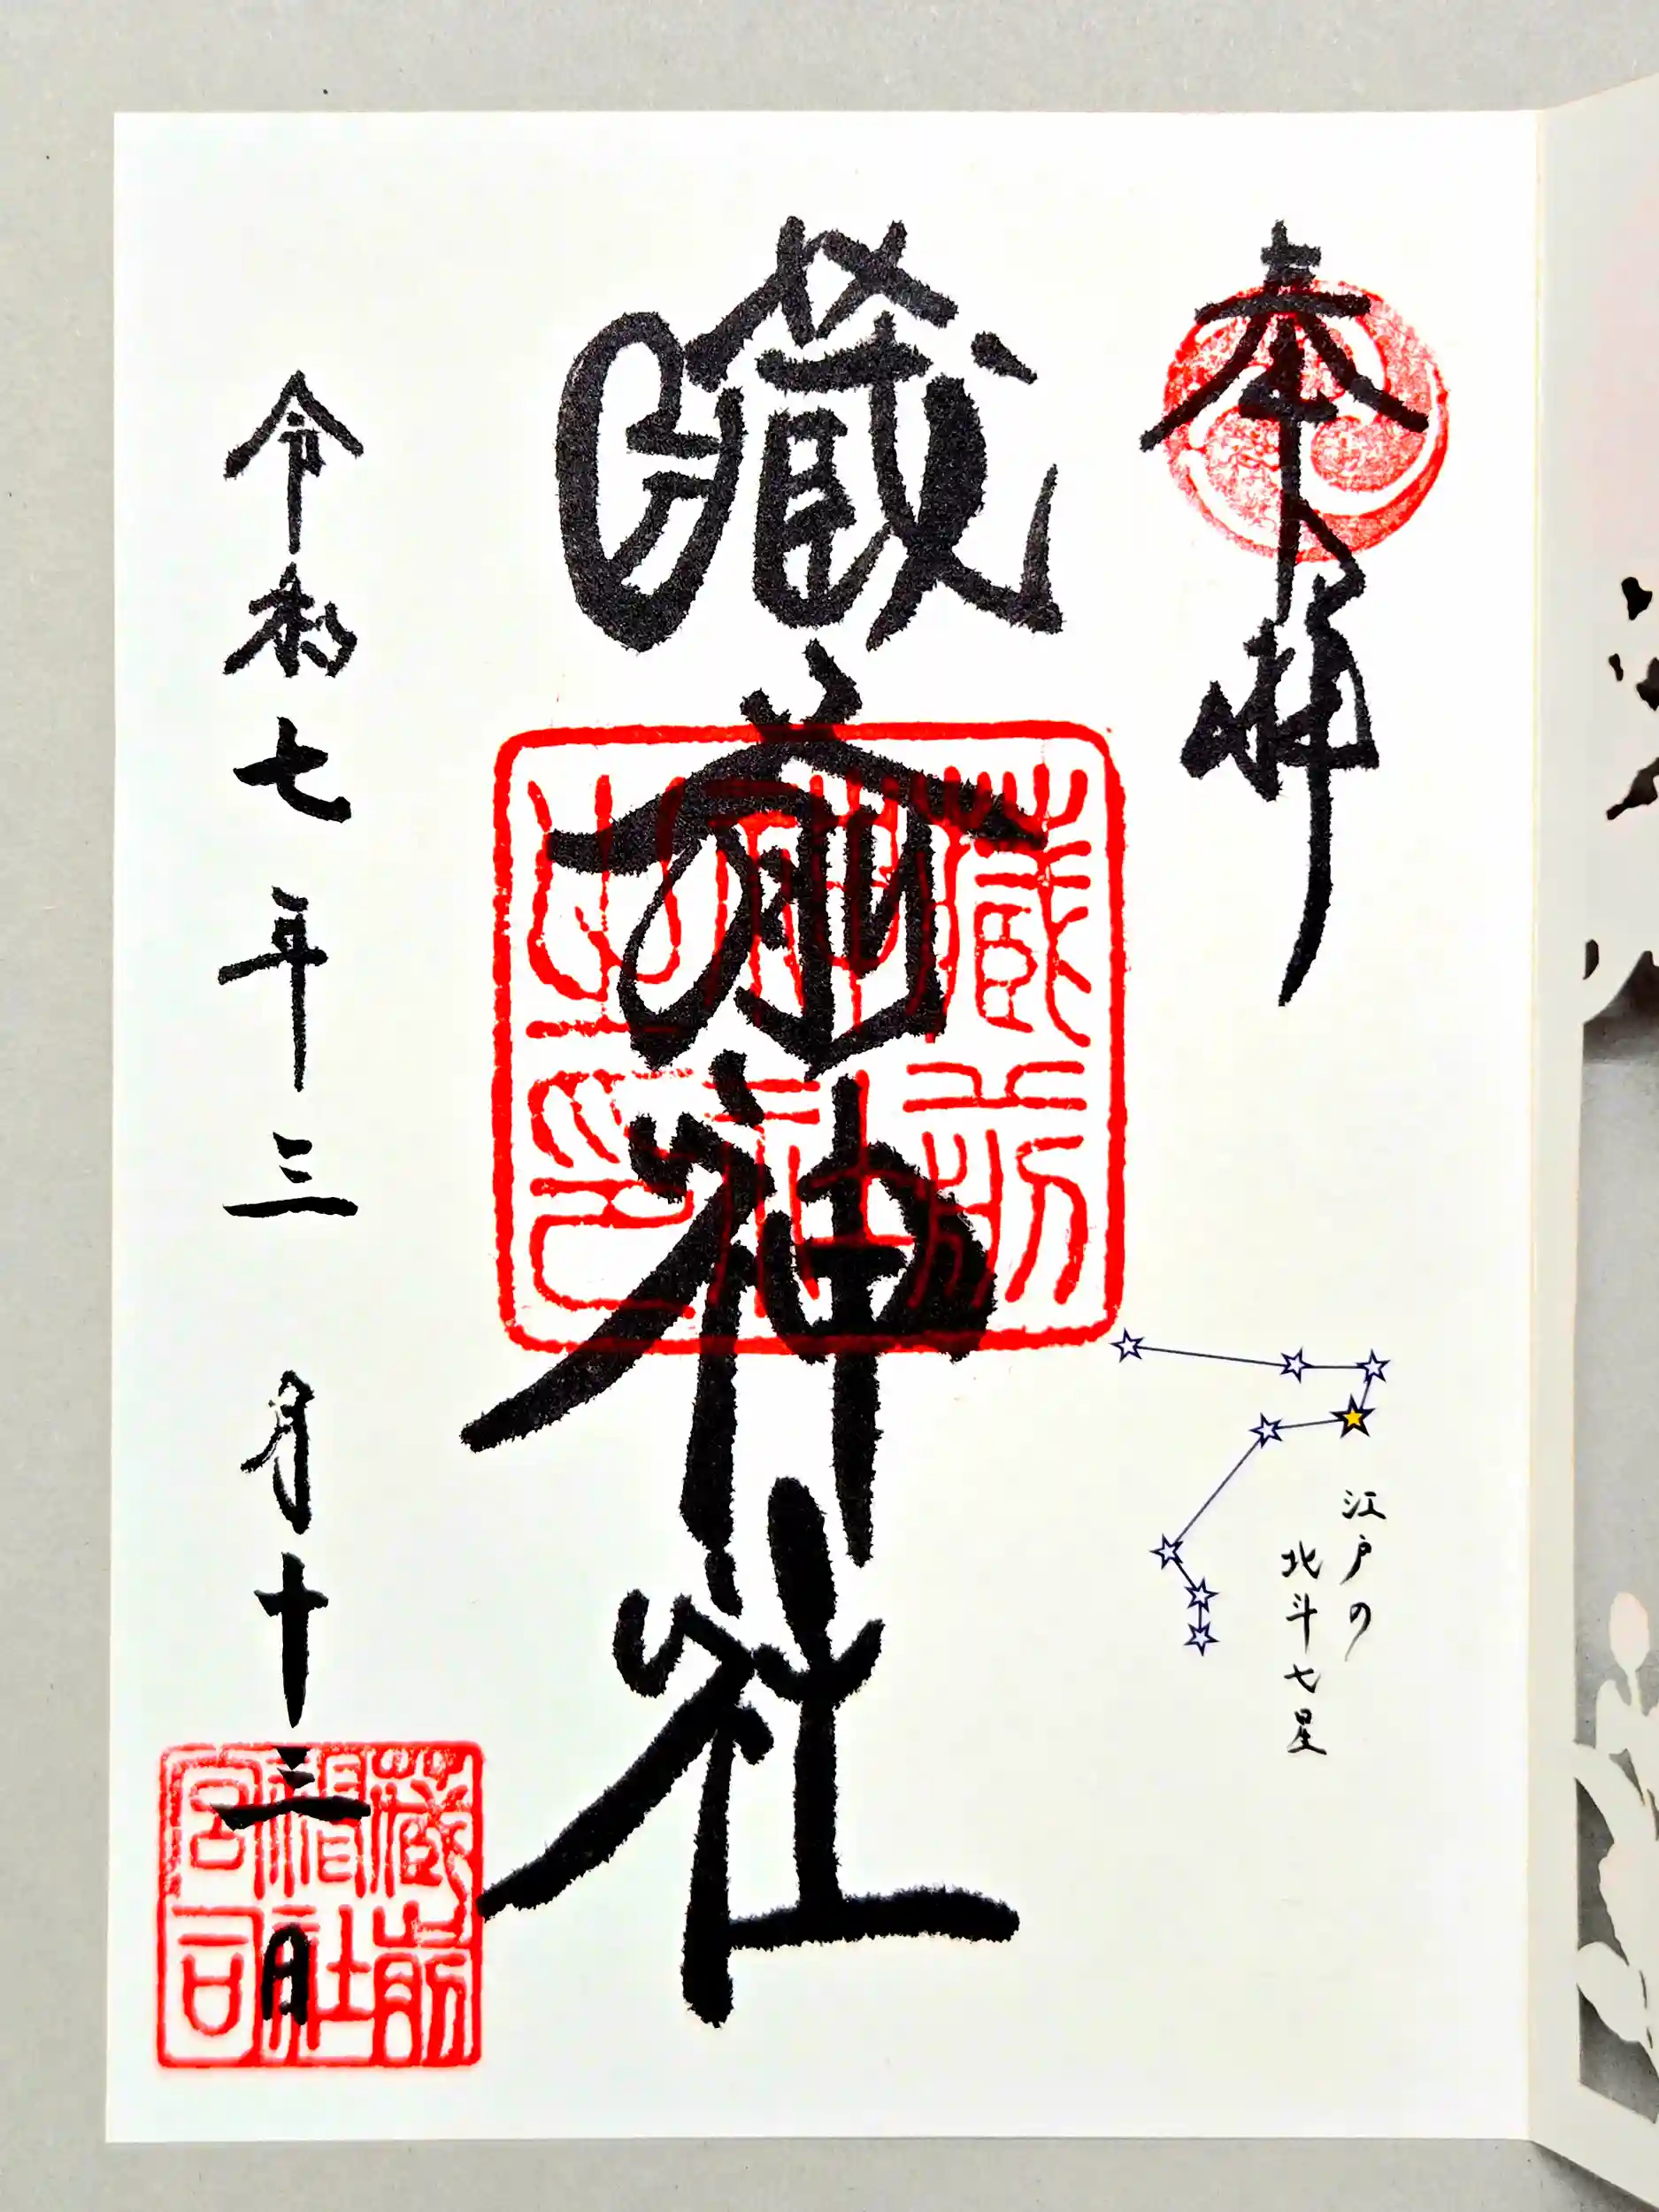 奉拝
江戸の
北斗七星
藏前神社
藏前神社之印
令和七年三月十三日
藏前神社宮司